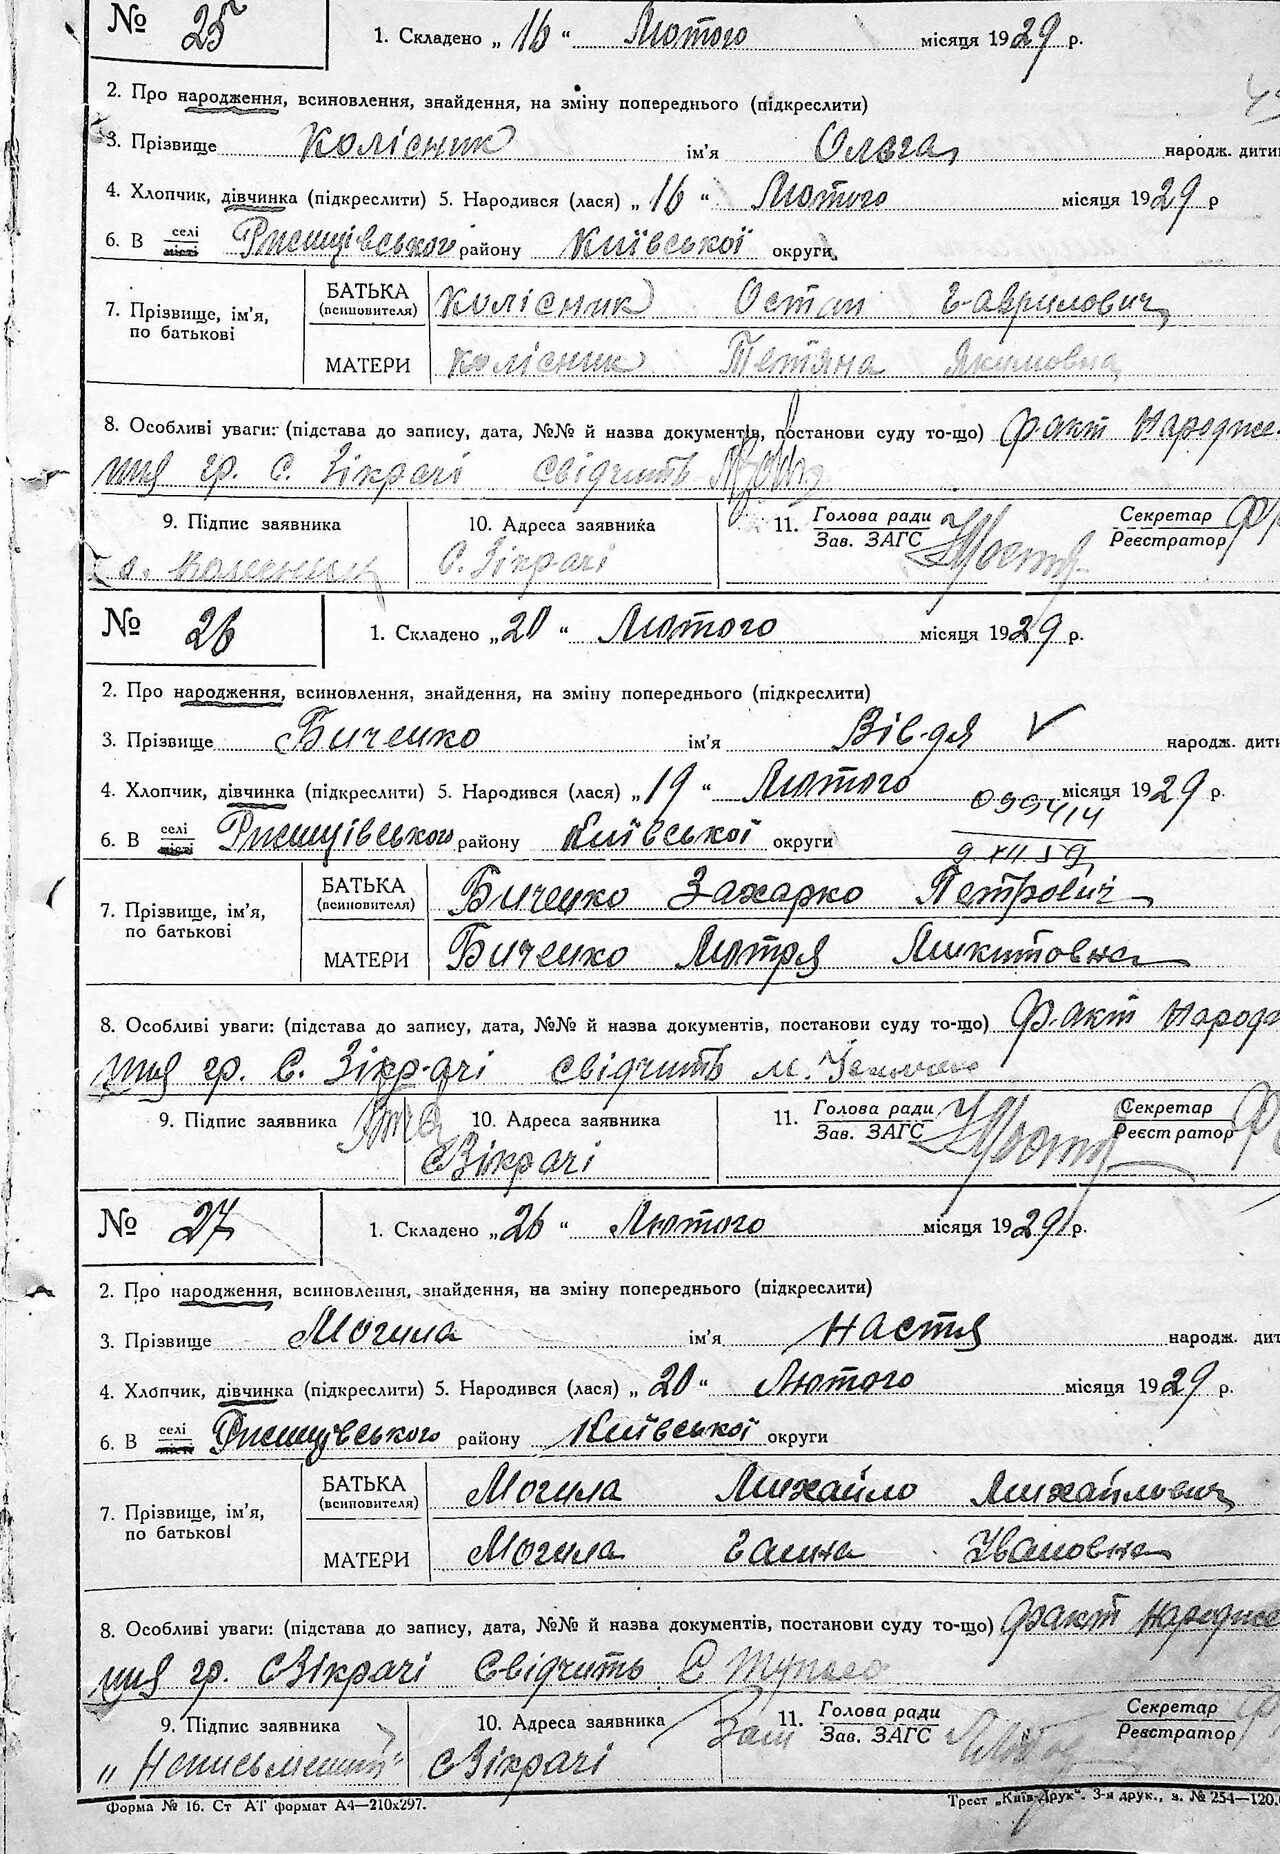 № 25 1. Складено „ 16 “ Лютого місяця 1929 р.
2. Про народження, всиновлення, знайдення, на зміну попереднього (підкреслити)
3. Прізвище Колісник ім'я Ольга народж. дити
4. Хлопчик, дівчинка (підкреслити) 5. Народився (лася) „ 16 “ Лютого місяця 1929 р
6. В селі місті Ржищівського району Київської округи
7. Прізвище, ім'я, по батькові
БАТЬКА (всиновителя) Колісник Остап Гаврилович
МАТЕРИ Колісник Тетяна Якимовна
8. Особливі уваги: (підстава до запису, дата, №№ й назва документів, постанови суду то-що) Факт Народже-
ння гр. С. Зікрачі свідчить
9. Підпис заявника 10. Адреса заявника 11. Голова ради Зав. ЗАГС Секретар Реєстратор
С. Зікрачі
№ 26 1. Складено „ 20 “ Лютого місяця 1929 р.
2. Про народження, всиновлення, знайдення, на зміну попереднього (підкреслити)
3. Прізвище Биченко ім'я Вівдя народж. дити
4. Хлопчик, дівчинка (підкреслити) 5. Народився (лася) „ 19 “ Лютого місяця 1929 р.
099414
6. В селі місті Ржищівського району Київської округи
9 XII 59
7. Прізвище, ім'я, по батькові
БАТЬКА (всиновителя) Биченко Захарко Петрович
МАТЕРИ Биченко Мотря Микитовна
8. Особливі уваги: (підстава до запису, дата, №№ й назва документів, постанови суду то-що) Факт Народж
ння гр. С. Зікрачі свідчить М.
9. Підпис заявника 10. Адреса заявника 11. Голова ради Зав. ЗАГС Секретар Реєстратор
С Зікрачі
№ 27 1. Складено „ 26 “ Лютого місяця 1929 р.
2. Про народження, всиновлення, знайдення, на зміну попереднього (підкреслити)
3. Прізвище Могила ім'я Настя народж. дит
4. Хлопчик, дівчинка (підкреслити) 5. Народився (лася) „ 20 “ Лютого місяця 1929 р.
6. В селі місті Ржищівського району Київської округи
7. Прізвище, ім'я, по батькові
БАТЬКА (всиновителя) Могила Михайло Михайлович
МАТЕРИ Могила Галина Івановна
8. Особливі уваги: (підстава до запису, дата, №№ й назва документів, постанови суду то-що) Факт Народже
ння гр. С Зікрачі Свідчить С
9. Підпис заявника 10. Адреса заявника Зам 11. Голова ради Зав. ЗАГС Секретар Реєстратор
„Неписьменний“ С Зікрачі
Форма № 16. Ст АТ формат А4—210х297. Трест „Київ-Друк“. 3-я друк., з. № 254—120.